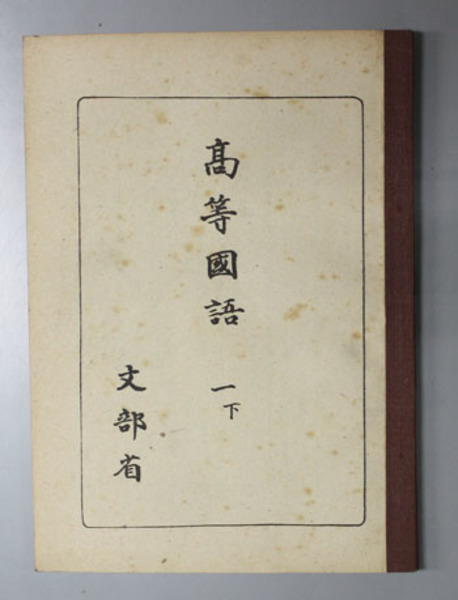 髙等國語 一下
文部省